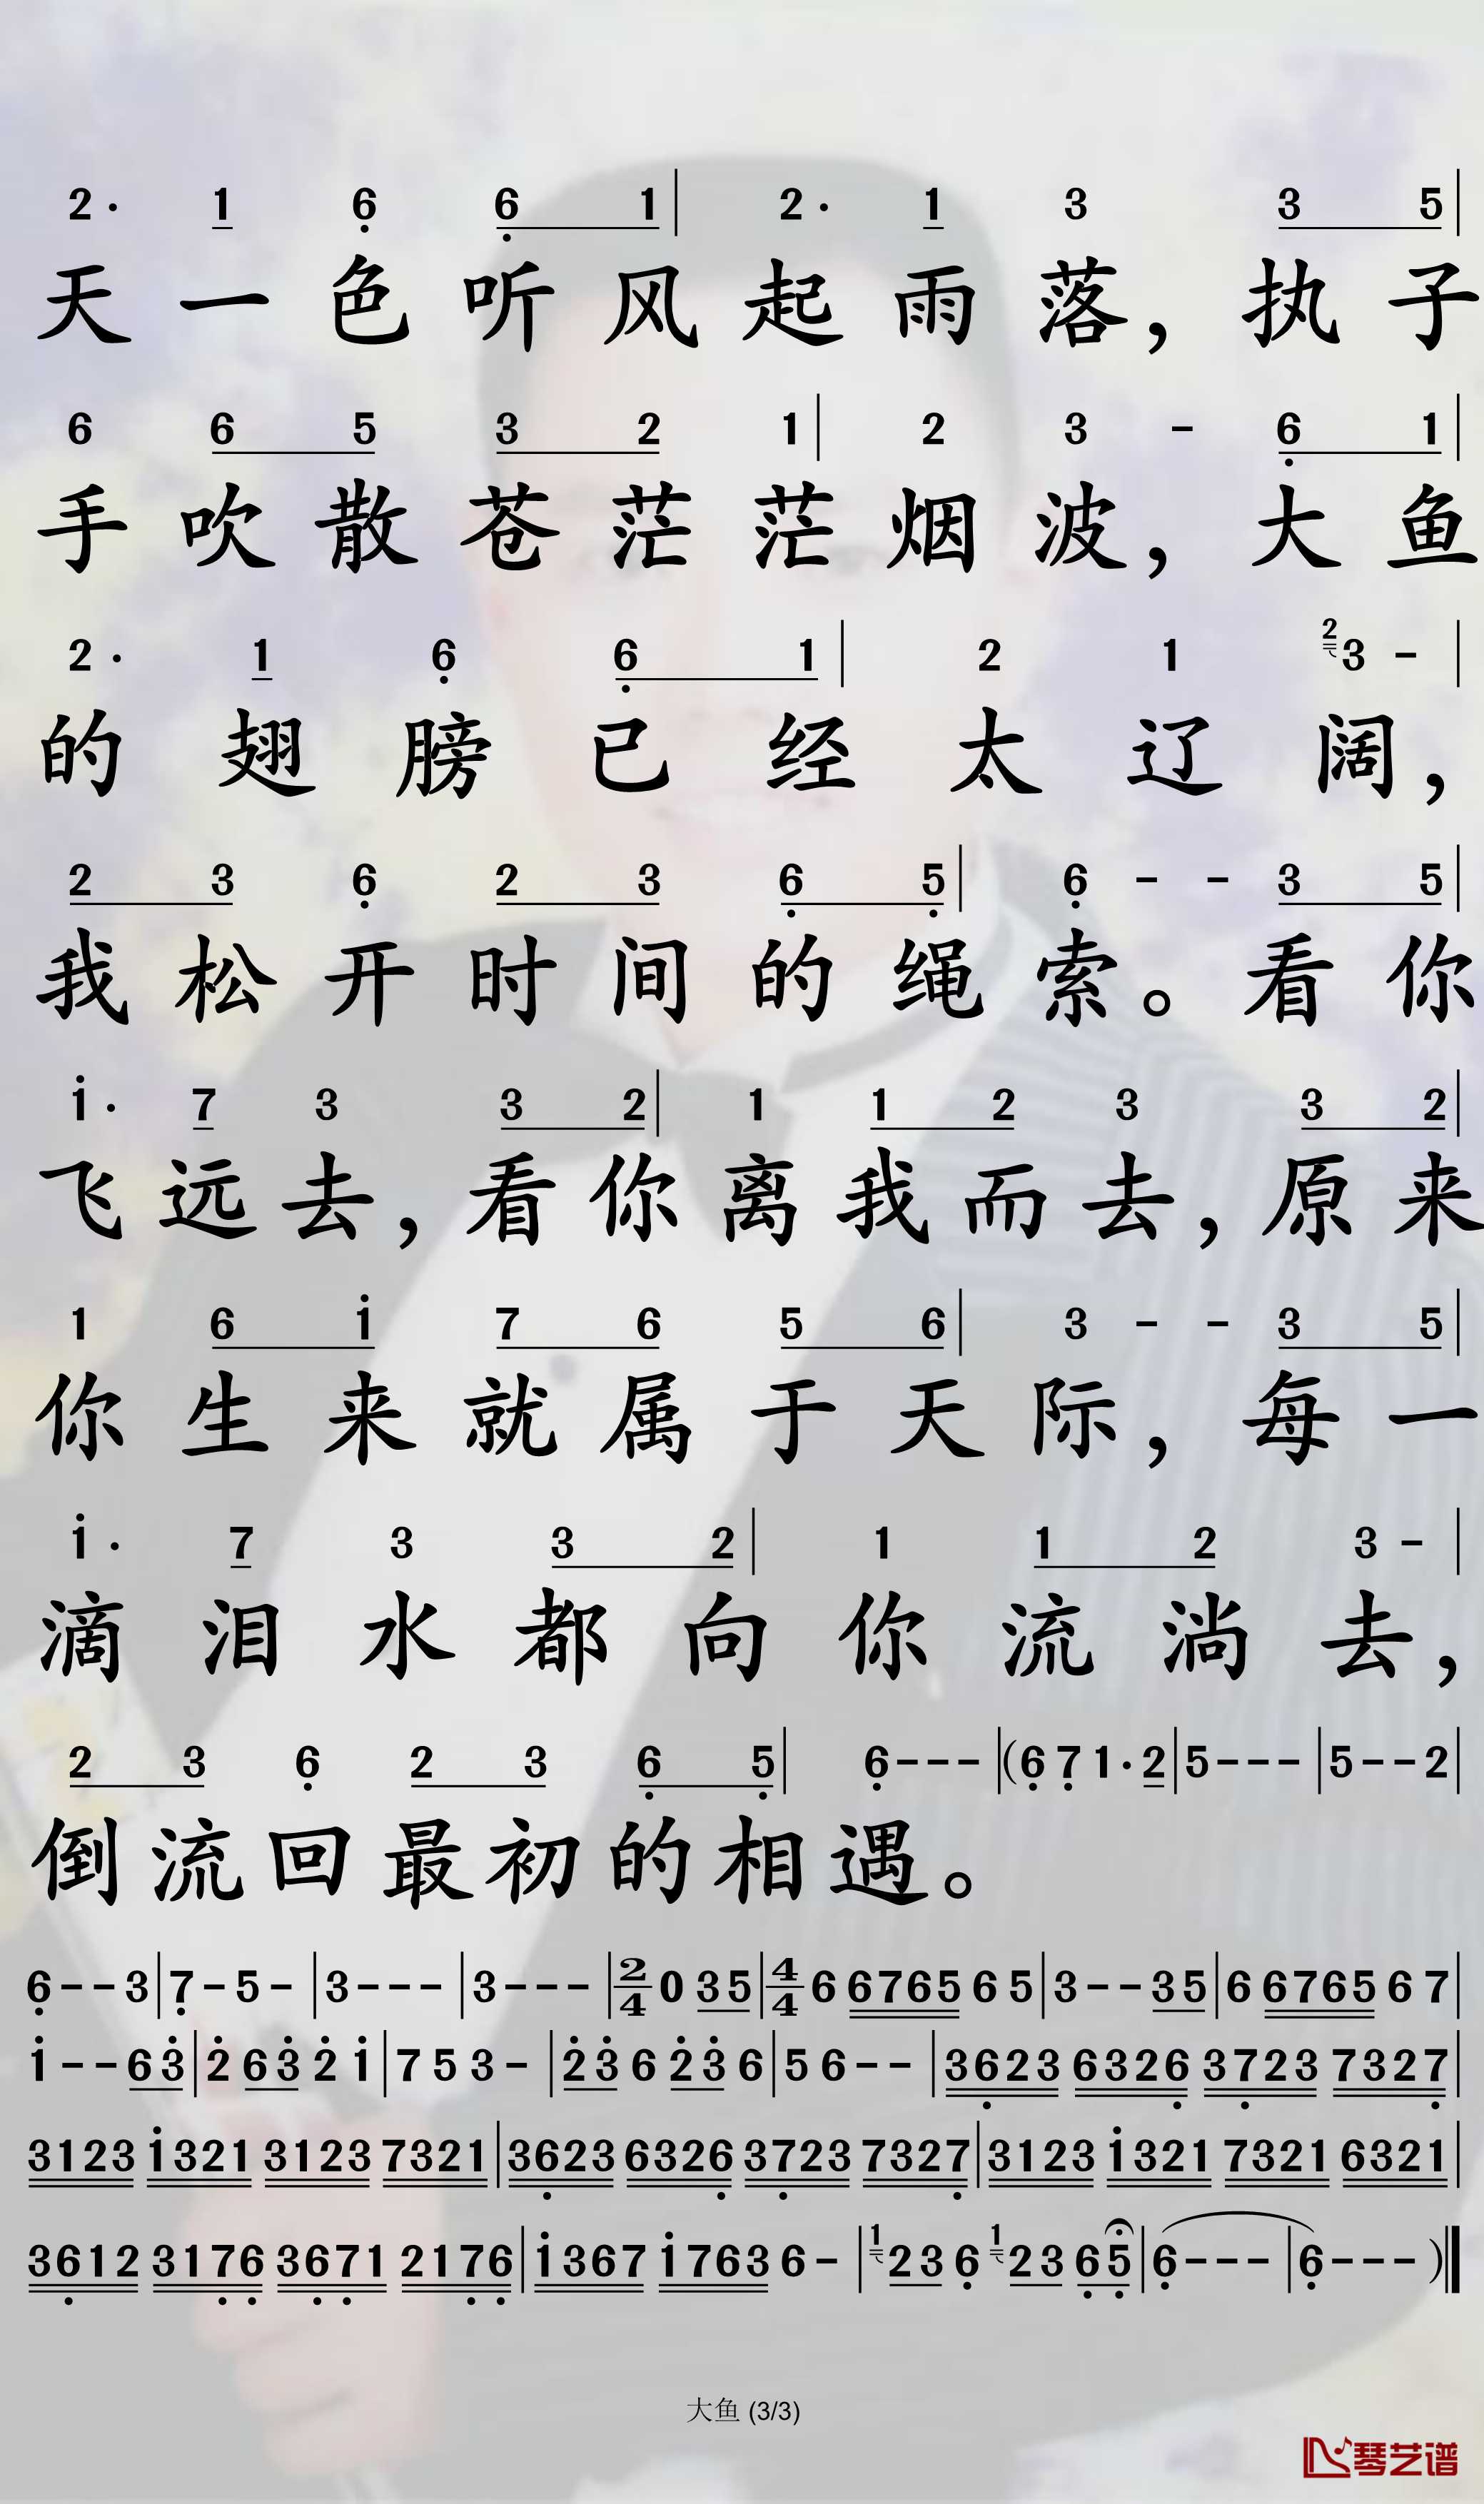 2· 1 6 6 1 | 2· 1 3 3 5 |
天一色听风起雨落，执子
6 6 5 3 2 1 | 2 3 - 6 1 |
手吹散苍茫茫烟波，大鱼
2· 1 6 6 1 | 2 1 2 3 - |
的翅膀已经太辽阔，
2 3 6 2 3 6 5 | 6 - - 3 5 |
我松开时间的绳索。看你
1· 7 3 3 2 | 1 1 2 3 3 2 |
飞远去，看你离我而去，原来
1 6 1 7 6 5 6 | 3 - - 3 5 |
你生来就属于天际，每一
1· 7 3 3 2 | 1 1 2 3 - |
滴泪水都向你流淌去，
2 3 6 2 3 6 5 | 6 - - - | (6 7 1· 2 | 5 - - - | 5 - - 2 |
倒流回最初的相遇。
6 - - 3 | 7 - 5 - | 3 - - - | 3 - - - | 2/4 0 3 5 | 4/4 6 6765 6 5 | 3 - - 3 5 | 6 6765 6 7 |
1 - - 6 3 | 2 6 3 2 1 | 7 5 3 - | 2 3 6 2 3 6 | 5 6 - - | 3623 6326 3723 7327 |
3123 1321 3123 7321 | 3623 6326 3723 7327 | 3123 1321 7321 6321 |
3612 3176 3671 2176 | 1367 1763 6 - | 1 2 3 6 1 2 3 6 5 | 6 - - - | 6 - - - )
大鱼 (3/3)
琴艺谱